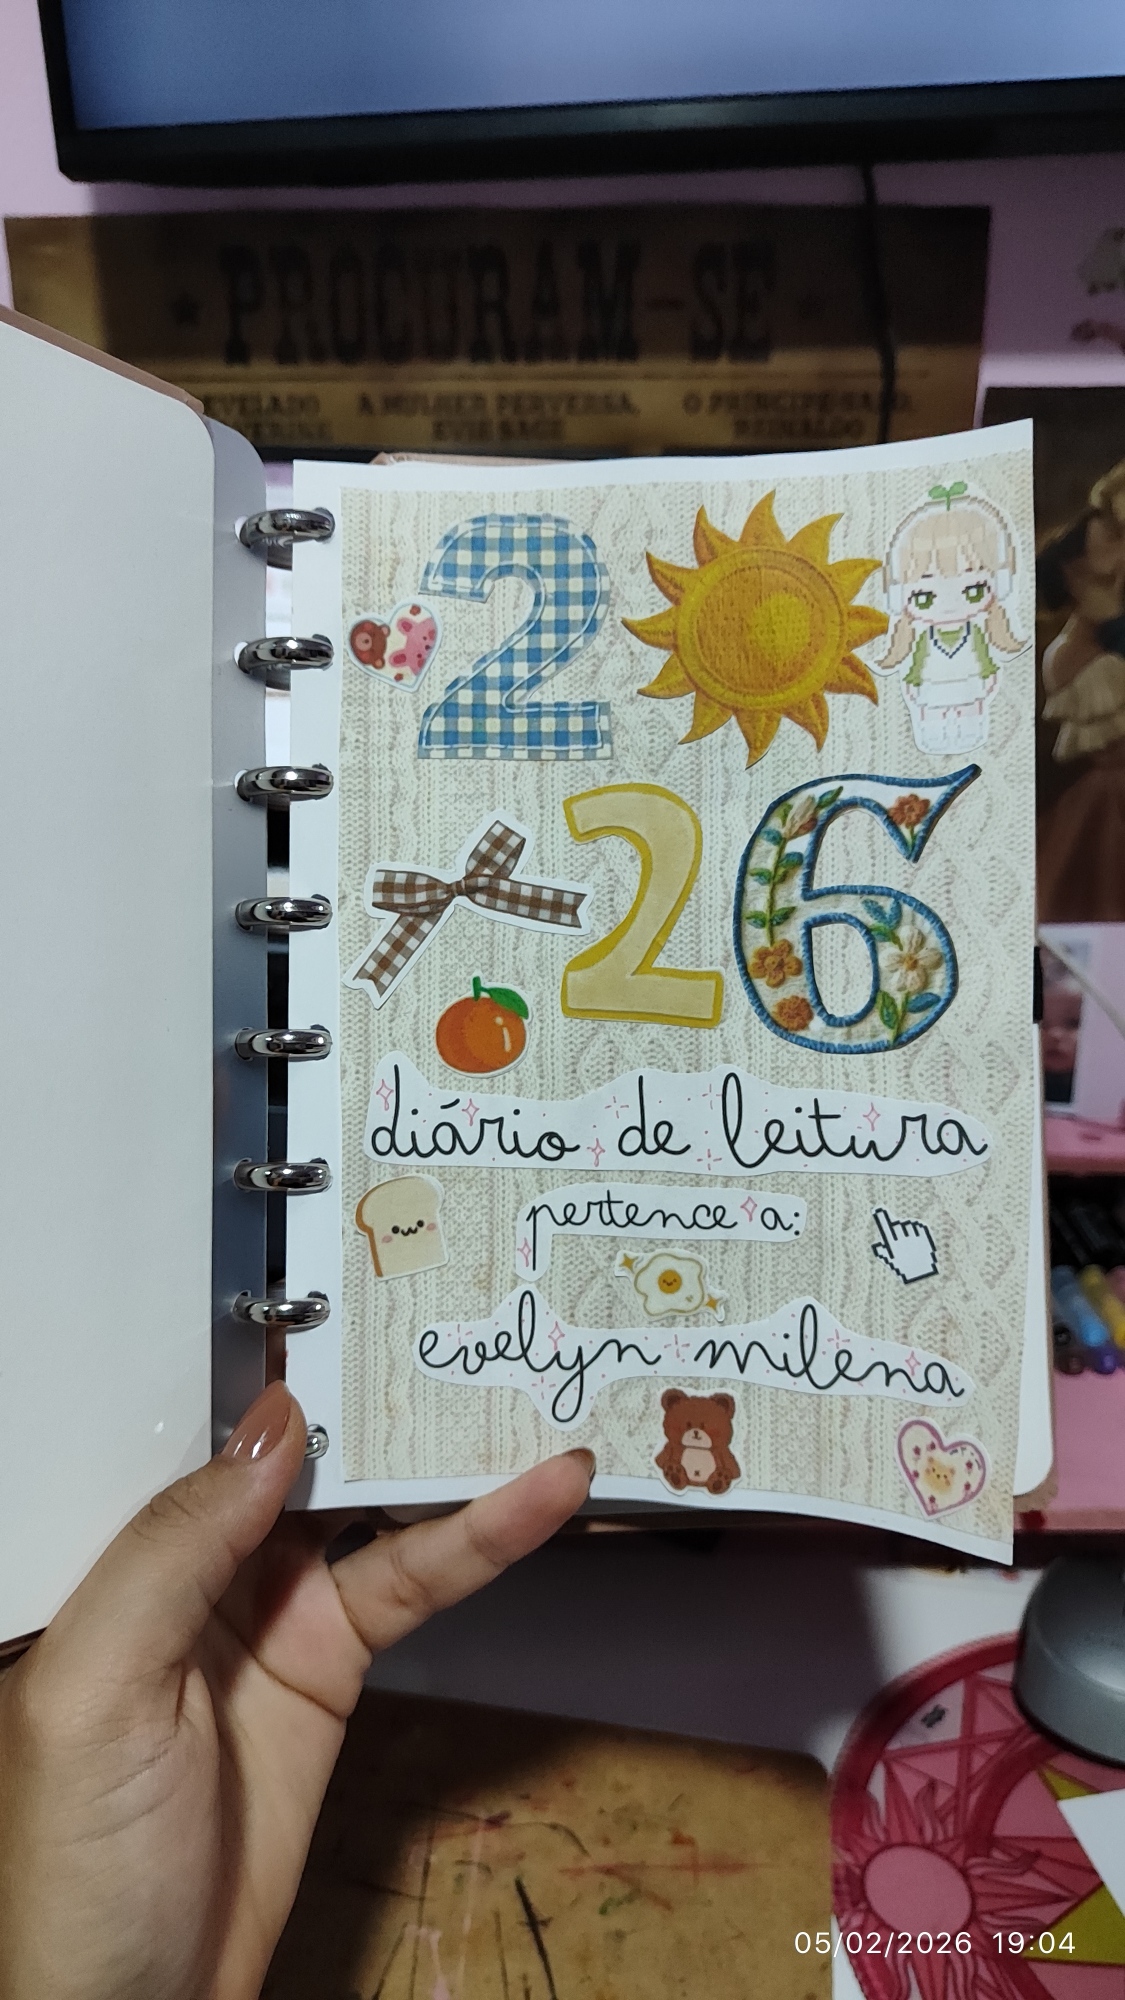 PROCURAM-SE
A MULHER PERVERSA,
EVIE SAGE
2 26
diário de leitura
pertence a:
evelyn milena
05/02/2026 19:04